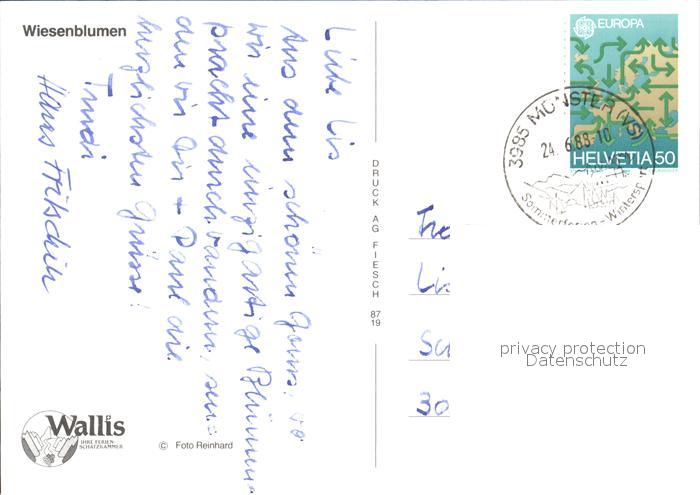 Wiesenblumen
Liebe Lis
Aus dem schönen Goms, wo
wir eine einzigartige Blumen-
pracht durchwandern, sen-
den wir Dir + Paul die
herzlichsten Grüsse!
Trudi
Hans Fritschin
DRUCK AG FIESCH 87 19
EUROPA
HELVETIA 50
3985 MÜNSTER (VS)
24.6.88-10
Sommerferien-Wintersport
Fre
Li
Sc
30
privacy protection
Datenschutz
Wallis
IHRE FERIEN-
SCHATZKAMMER
© Foto Reinhard